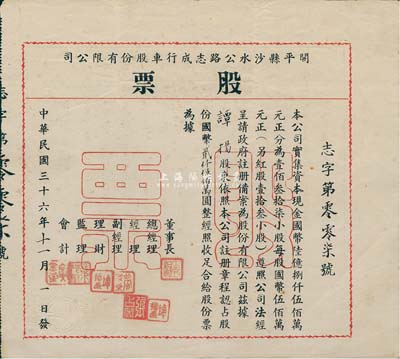 開平縣沙水公路志成行車股份有限公司
股票
志字第零零柒號
本公司實集資本現金國幣陸億捌仟伍佰萬
元正分為壹佰叁拾柒小股每股國幣伍佰萬
元正（另紅股壹拾叁小股）遵照公司法經
呈請政府註冊備案為股份有限公司茲據
譚 股東依照本公司註冊章程認占股
份國幣 佰萬圓整經照收足合給股份票
為據
董事長
總經理
經理
副經理
監理
理財
會計
中華民國三十六年十一月 日發
志字第零零柒號